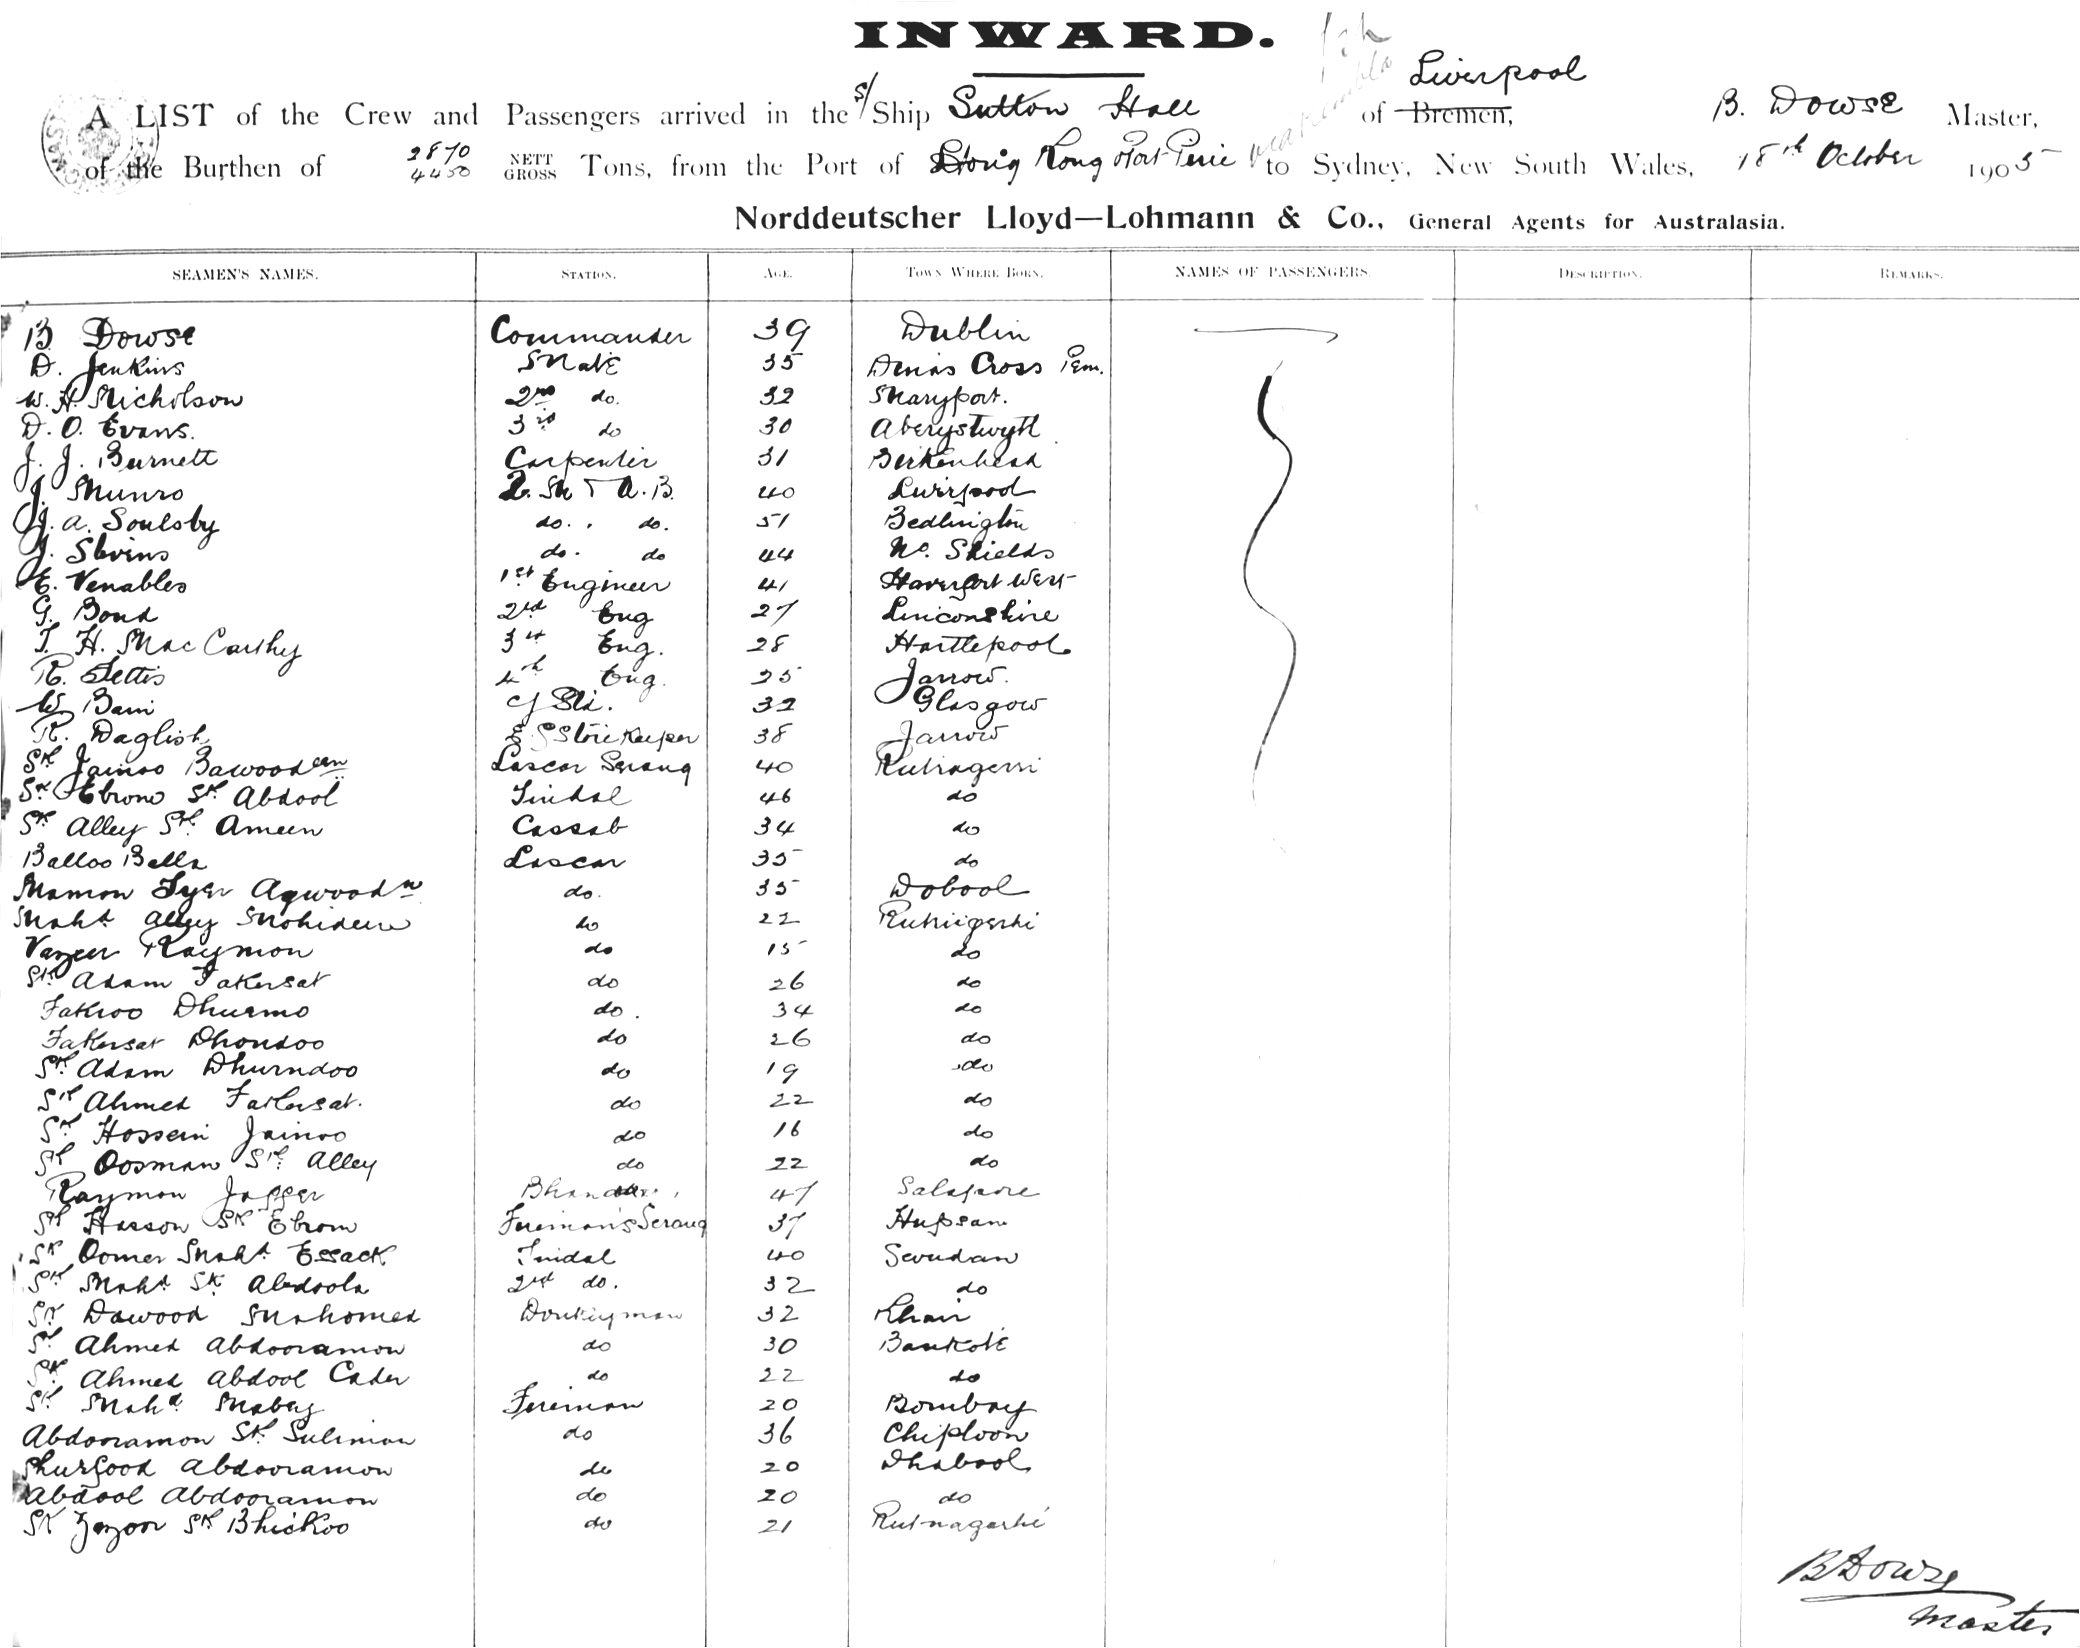 INWARD.
A LIST of the Crew and Passengers arrived in the S/Ship Sutton Hall of Bremen, Liverpool B. Dowse Master,
of the Burthen of 2870 4450 NETT GROSS Tons, from the Port of Hong Kong Port Pirie to Sydney, New South Wales, 18th October 1905
Norddeutscher Lloyd—Lohmann & Co., General Agents for Australasia.
SEAMEN'S NAMES. STATION. AGE. TOWN WHERE BORN. NAMES OF PASSENGERS. DESCRIPTION. REMARKS.
B Dowse Commander 39 Dublin
D. Jenkins Mate 35 Dinas Cross Pem.
W. H. Nicholson 2nd do. 32 Maryport.
D. O. Evans. 3rd do 30 Aberystwyth
J. J. Burnett Carpenter 31 Birkenhead
J. Munro Q. M & A.B. 40 Liverpool
J. A. Soulsby do. do. 51 Bedlington
J. Stevens do. do 44 No. Shields
E. Venables 1st Engineer 41 Haverfort West
G. Bond 2nd Eng 27 Linconshire
T. H. MacCarthy 3rd Eng. 28 Hartlepool
R. Lettis 4th Eng. 25 Jarrow.
W Bain Cf Std. 32 Glasgow
R. Daglish Storekeeper 38 Jarrow
Sk Jainoo Bawoodeen Lascar Serang 40 Rutnagerri
Sk Ebrom Sk Abdool Tindal 46 do
Sk Alley Sk Ameen Cassab 34 do
Balloo Balla Lascar 35 do
Mamon Iyer Agwoodn do. 35 Dobool
Mahd Alley Mohideen do 22 Rutnigerhi
Vazeer Raymon do 15 do
Sk Adam Fakersat do 26 do
Fakroo Dhurmo do. 34 do
Fakersat Dhondoo do 26 do
Sk Adam Dhurndoo do 19 do
Sk Ahmed Fakersat. do 22 do
Sk Hossein Jainoo do 16 do
Sk Oosman Sk Alley do 22 do
Raymon Jaffer 47 Salapore
Sk Hasson Sk Ebrom Fireman's Serang 37
Sk Oomer Mahd Essack Tindal 40 Sevudan
Sk Mahd Sk Abdoola 2nd do. 32 do
Sk Dawood Mahomed Donkeyman 32 Khair
Sk Ahmed Abdooramon do 30 Bankote
Sk Ahmed Abdool Cader do 22 do
Sk Mahd Mabey Fireman 20 Bombay
Abdooramon Sk Suliman do 36 Chiploon
Shurfood Abdooramon do 20 Dhabool
Abdool Abdooramon do 20 do
Sk Sk Bhickoo do 21 Rutnagerhi
B Dowse
Master